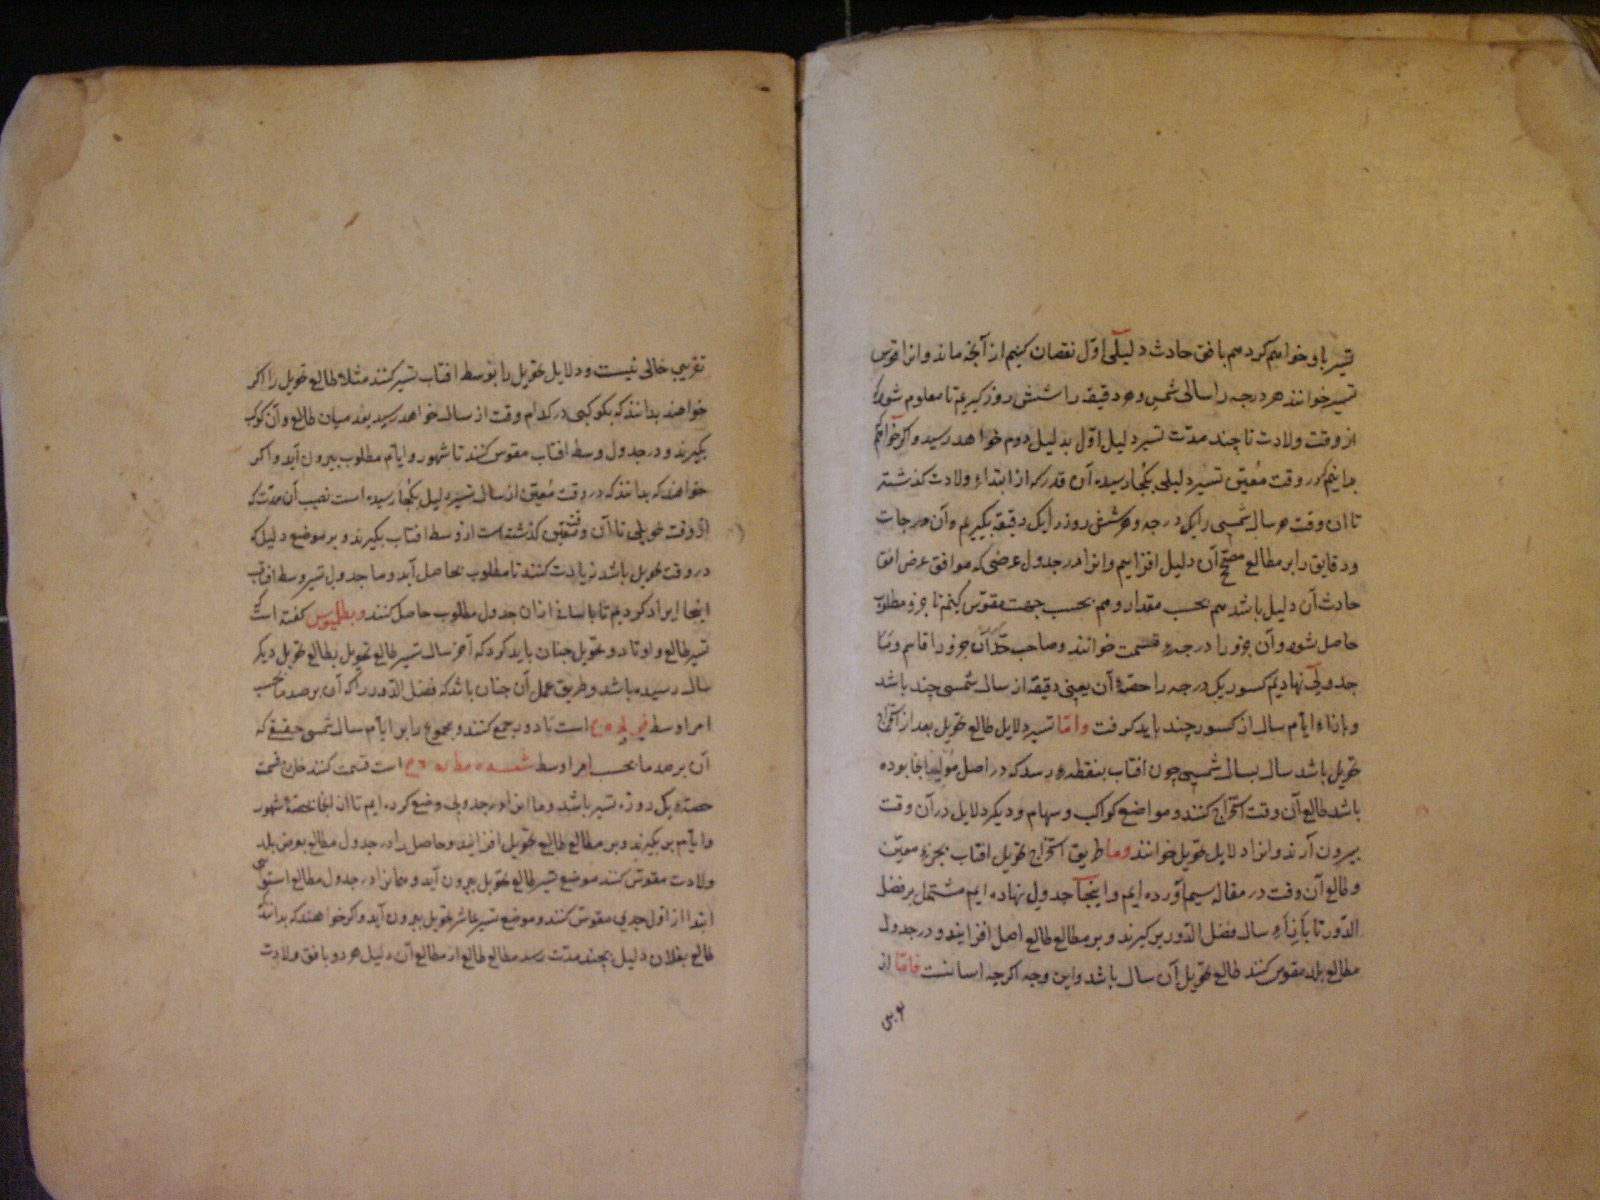 تسیر باو خواهیم کرد هم بافق حادث دلیل اول نقصان کنیم از آنچه ماند و انرا قوس
تسیر خوانند هر درجه را سالی شمسی و هر دقیقه را شش روز کیریم تا معلوم شود که
از وقت ولادت تا چند مدت تسیر دلیل اول بدلیل دوم خواهد رسید و اکر خواهیم
بدانیم که در وقت معین تسیر دلیلی بکجا رسیده آن قدر که از ابتداء ولادت کذشته
تا ان وقت هر سال شمسی را یک درجه و هر شش روز را یک دقیقه بکیریم و آن درجات
و دقایق را بر مطالع مصحح آن دلیل افزاییم و انرا در جدول عرضی که موافق عرض افق
حادث آن دلیل باشد هم بحسب مقدار و هم بحسب جهت مقوس کنیم تا جزو مطلوب
حاصل شود و آن جزو را درجهٔ قسمت خوانند و صاحب حد آن جزو را قاسم و ما
جدولی نهادیم کسور یک درجه را حصهٔ آن یعنی دقیقه از سال شمسی چند باشد
و بازاء ایام سال از کسور چند باید کرفت واما تسیر دلایل طالع تحویل بعد از استخراج
تحویل باشد سال بسال شمسی چون افتاب بنقطهٔ رسد که در اصل مولید انجا بوده
باشد طالع آن وقت استخراج کنند و مواضع کواکب و سهام و دیکر دلایل در آن وقت
بیرون آرند و انرا دلایل تحویل خوانند وما طریق استخراج تحویل افتاب بجزء معین
و طالع آن وقت در مقاله سیم آورده ایم و اینجا جدول نهاده ایم مشتمل بر فضل
الدور تا بازاء سال فضل الدور برکیرند و بر مطالع طالع اصل افزایند و در جدول
مطالع بلد مقوس کنند طالع تحویل آن سال باشد و این وجه اکرچه اسانست فاما از
تقریبی خالی نیست و دلایل تحویل را بوسط افتاب تسیر کنند مثلا طالع تحویل را اکر
خواهند بدانند که بکوکبی در کدام وقت از سال خواهد رسید بعد میان طالع و آن کوکب
بکیرند و در جدول وسط افتاب مقوس کنند تا شهور و ایام مطلوب بیرون آید و اکر
خواهند که بدانند که در وقت معین از سال تسیر دلیل بکجا رسیده است نصیب آن مدت که
از وقت تحویل تا آن وقت معین کذشته است از وسط افتاب بکیرند و بر موضع دلیل که
در وقت تحویل باشد زیادت کنند تا مطلوب بحاصل آید و ما جدول تسیر وسط افتاب
اینجا ایراد کردیم تا باسانی ازان جدول مطلوب حاصل کنند و بطلمیوس کفته است که
تسیر طالع و اوتاد و تحویل چنان باید کرد که آخر سال تسیر طالع تحویل بطالع تحویل دیکر
سال رسیده باشد و طریق عمل آن چنان باشد که فضل الدور را که آن برصد ما بحسب
امر اوسط است با دور جمع کنند و مجموع را بر ایام سال شمسی حقیقی که
آن برصد ما بحسب امر اوسط است قسمت کنند خارج قسمت
حصهٔ یک روزه تسیر باشد و ما انرا در جدولی وضع کرده ایم تا ازان انجا حصهٔ شهور
و ایام برکیرند و بر مطالع طالع تحویل افزایند و حاصل را در جدول مطالع بعرض بلد
ولادت مقوس کنند موضع تسیر طالع تحویل بیرون آید و همانرا در جدول مطالع استوی
ابتدا از اول جدی مقوس کنند و موضع تسیر عاشر تحویل بیرون آید و اکر خواهند که بدانند که
طالع بفلان دلیل بچند مدت رسد مطالع طالع از مطالع آن دلیل هر دو بافق ولادت